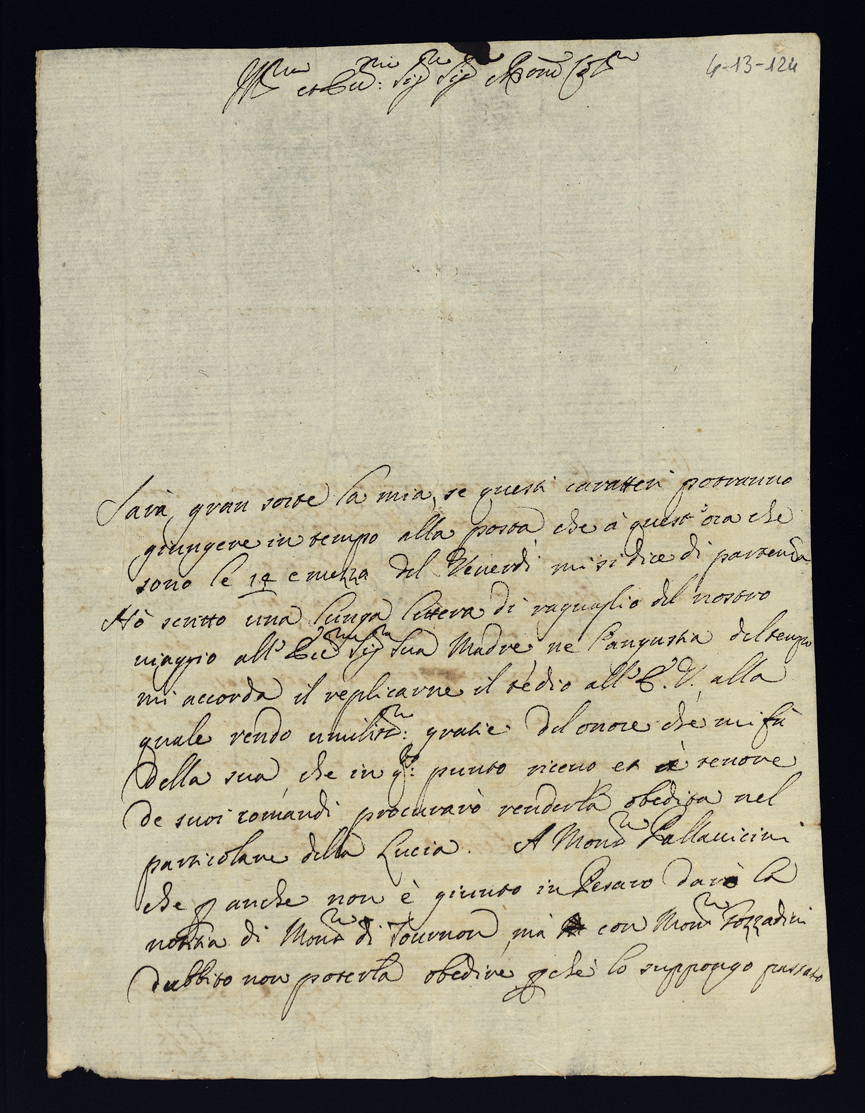 Ill.mo et Ecc.mo Sig.r Sig.r e Pron Col.mo
4-13-124
Sarà gran sorte la mia, se questi caratteri potranno
giungere in tempo alla posta che à quest'ora che
sono le 14 e mezza del Venerdì mi si dice di partenza
Hò scritto una lunga lettera di raguaglio del nostro
viaggio all'Ecc.ma Sig.ra Sua Madre ne l'angustia del tempo
mi accorda il replicarne il tedio all'E.V. alla
quale rendo umiliss.me gratie del onore che mi fà
della sua che in q.to punto ricevo et à tenore
de suoi comandi procurarò renderla obedita nel
particolare della Lucia. A Mons.r Pallavicini
che p anche non è giunto in Pesaro darò la
notitia di Mons.r di Tournon, mà con Mons.r Gozzadini
dubbito non poterla obedire pche lo suppongo passato